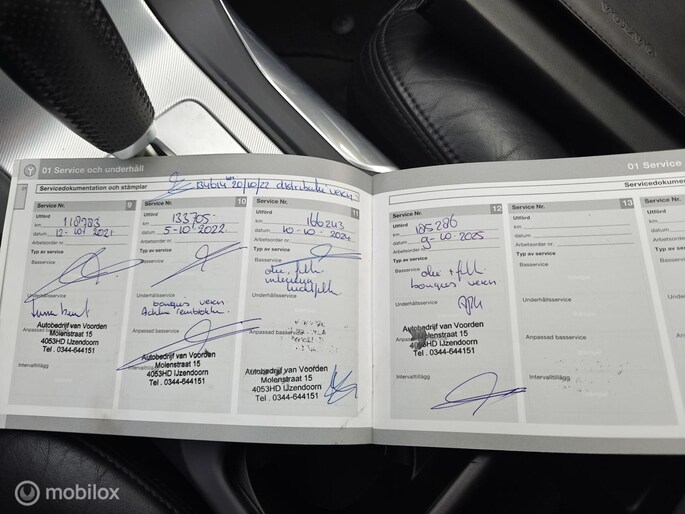 01 Service och underhåll
Servicedokumentation och stämplar
134614 km 20/10/22 distributie verv.
Service Nr. 9
Utförd
km 118983
datum 12-10-2021
Arbetsorder nr.
Typ av service
Basservice
Underhållsservice
Autobedrijf van Voorden
Molenstraat 15
4053HD IJzendoorn
Tel . 0344-644151
Intervalltillägg
Service Nr. 10
Utförd
km 133705
datum 5-10-2022
Arbetsorder nr.
Typ av service
Basservice
Underhållsservice
bougies verv.
Achter remblokken
Anpassad basservice
Autobedrijf van Voorden
Molenstraat 15
4053HD IJzendoorn
Tel . 0344-644151
Intervalltillägg
Service Nr. 11
Utförd
km 166243
datum 10-10-2024
Arbetsorder nr.
Typ av service
Basservice
olie, filter
interieurfilter
luchtfilter
Underhållsservice
Anpassad basservice
Autobedrijf van Voorden
Molenstraat 15
4053HD IJzendoorn
Tel . 0344-644151
Intervalltillägg
01 Service
Service Nr. 12
Utförd
km 185286
datum 9-10-2025
Arbetsorder nr.
Typ av service
Basservice
olie + filter
bougies verv
Underhållsservice
Autobedrijf van Voorden
Molenstraat 15
4053HD IJzendoorn
Tel . 0344-644151
Intervalltillägg
Service Nr. 13
Utförd
km
datum
Arbetsorder nr.
Typ av service
Basservice
Underhållsservice
Anpassad basservice
Intervalltillägg
Service Nr.
Utförd
km
datum
Arbetsorder
Typ av service
Basservice
Underhålls
Anpassad
Intervalltillägg
mobilox